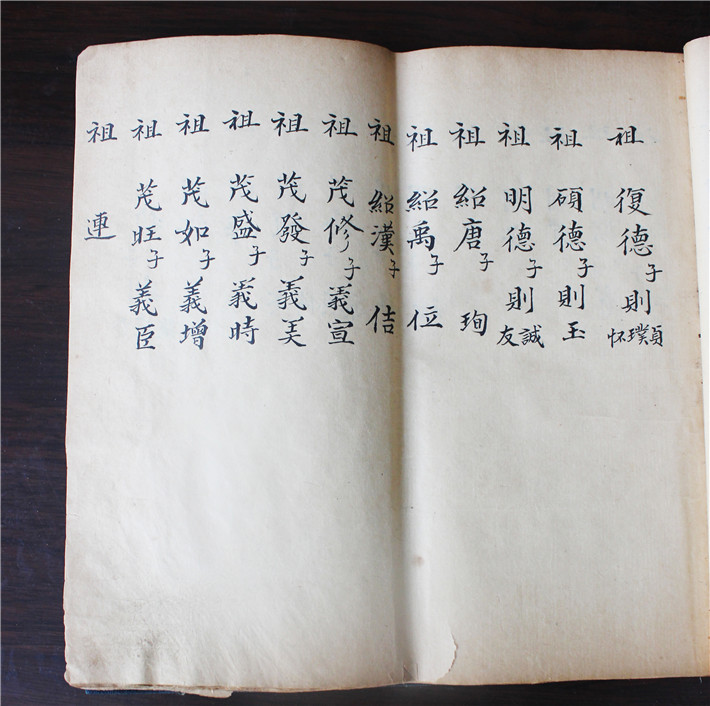 祖 復德子則貞璞怀
祖 碩德子則玉
祖 明德子則誠友
祖 紹唐子 珣
祖 紹禹子 位
祖 紹漢子 佶
祖 茂修子義宣
祖 茂發子義美
祖 茂盛子義時
祖 茂如子義增
祖 茂旺子義臣
祖 連